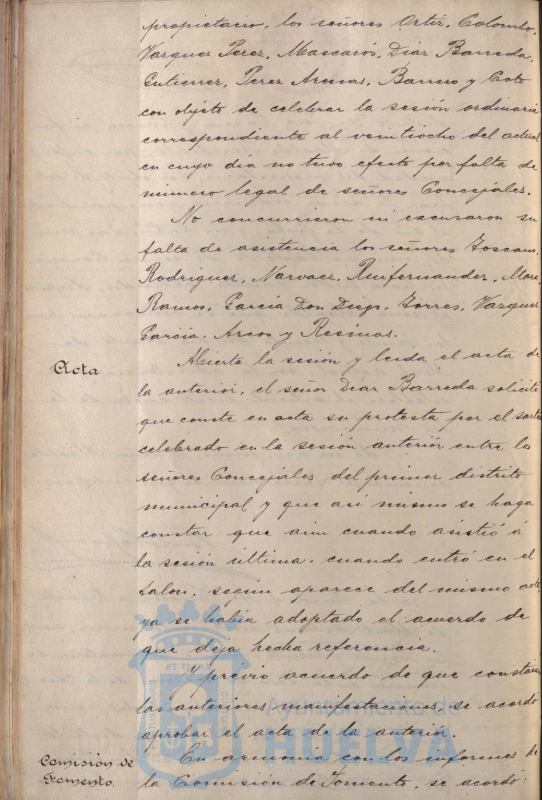 propietario, los señores Ortiz, Colombo,
Vazquez Perez, Mascarós, Diaz Barreda,
Gutierrez, Perez Arenas, Barrero y Coto
con objeto de celebrar la sesión ordinaria
correspondiente al veintiocho del actual
en cuyo día no tuvo efecto por falta de
número legal de señores Concejales.
No concurrieron ni excusaron su
falta de asistencia los señores Toscano,
Rodriguez, Narvaez, Ruifernandez, Mora,
Ramos, Garcia Don Diego, Torres, Vazquez
Garcia, Arcos y Resinas.
Acta
Abierta la sesión y leida el acta de
la anterior, el señor Diaz Barreda solicitó
que conste en acta su protesta por el sorteo
celebrado en la sesión anterior entre los
señores Concejales del primer distrito
municipal y que asi mismo se haga
constar que aun cuando asistió á
la sesión última, cuando entró en el
salon, según aparece del mismo acta,
ya se habia adoptado el acuerdo de
que deja hecha referencia.
Y previo acuerdo de que constáran
las anteriores manifestaciones, se acordó
aprobar el acta de la anterior.
Comisión de
Fomento.
En armonia con los informes de
la Comisión de Fomento, se acordó:
Ayuntamiento de
HUELVA